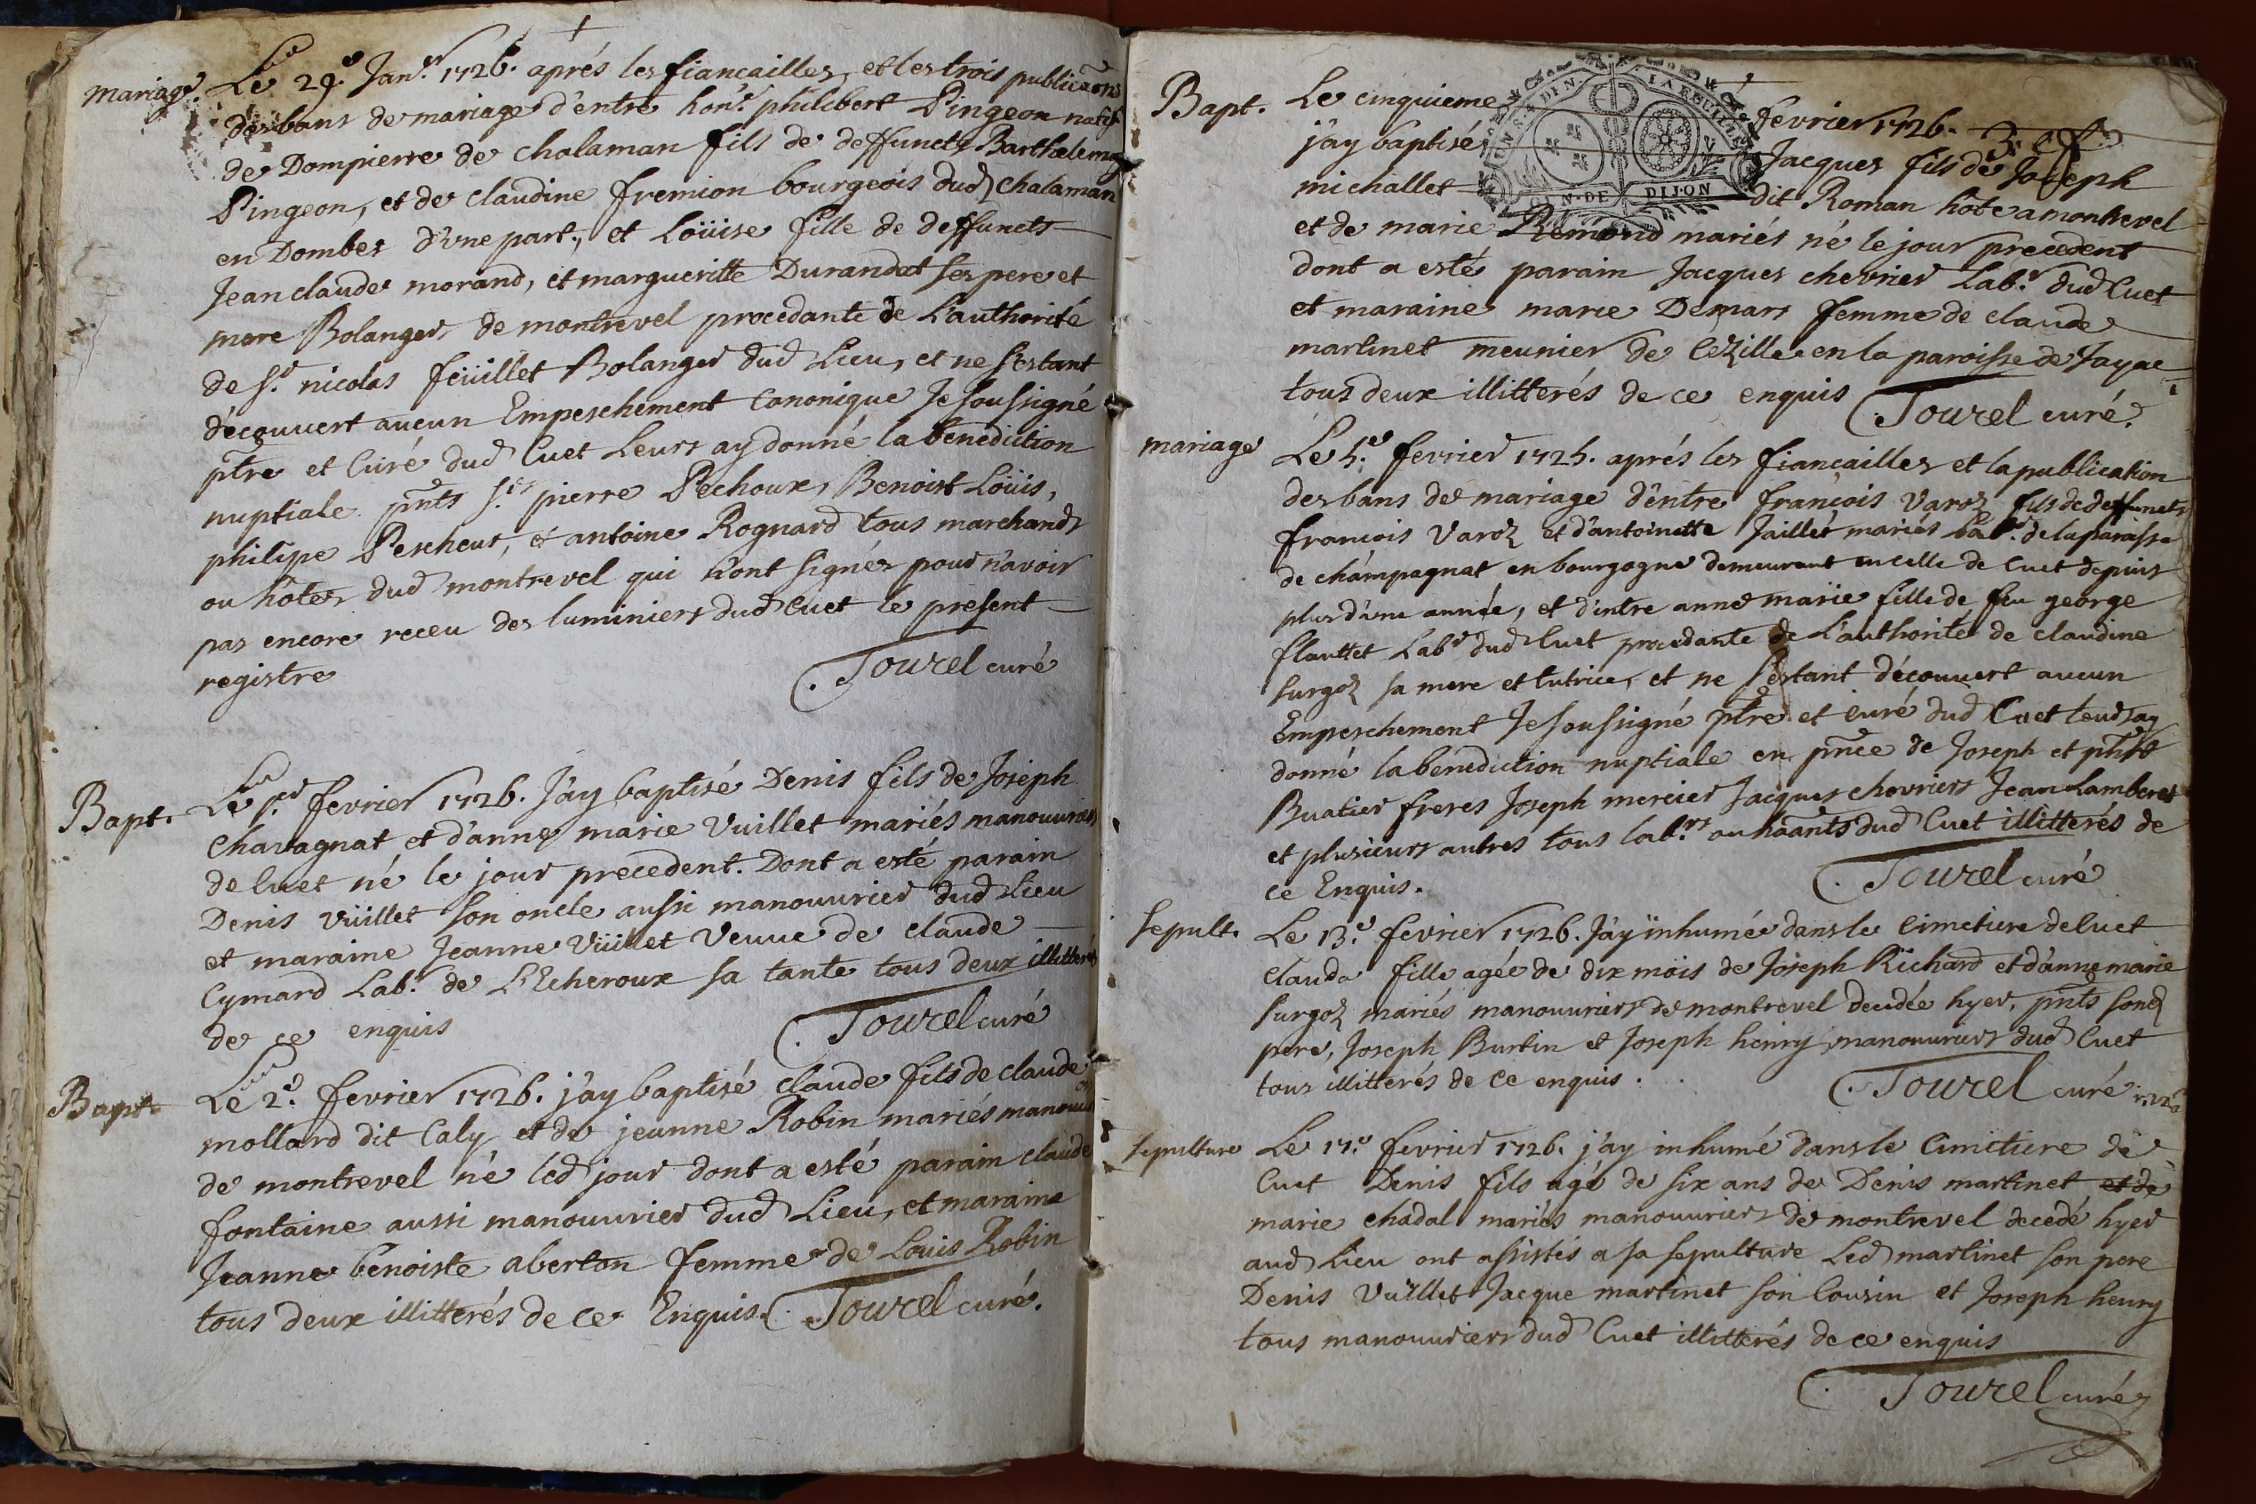 mariage. Le 29.e Jan.er 1726. aprés les fiancailles, et les trois publicãons
des bans de mariage d'entre hon.e philibert Pingeon natif
de Dompierre de chalaman fils de deffuncts Barthelemy
Pingeon, et de claudine fremion bourgeois dud chalaman
en Dombes d'vne part, et Loüise fille de deffuncts
Jean claude morand, et margueritte Durandet ses pere et
mere Bolanger de montrevel procedante de L'authorité
de s.r nicolas feüillet Bolanger dud Lieu, et ne s'estant
découvert aucun Empeschement Canonique Je soussigné
ptre et Curé dud Cuet Leurs ay donné la benediction
nuptiale pnts s.rs pierre Pechoux, Benoist Loüis,
philipe Pescheur, et antoine Rognard tous marchands
ou hôtes dud montrevel qui n'ont signés pour n'avoir
pas encore receu des luminiers dud Cuet le present
registre
Tourel curé
Bapt. Le p.er fevrier 1726. J'ay baptisé Denis fils de Joseph
Chavagnat et d'anne marie Vuillet mariés manouvriers
de Cuet né le jour precedent. Dont a esté parain
Denis Vüillet son oncle aussi manouvrier dud Lieu
et maraine Jeanne Vüillet Veuve de claude
Cymard Lab.r de L'Echeroux sa tante tous deux illitterés
de ce enquis
Tourel curé
Bapt. Le 2.e fevrier 1726. j'ay baptisé claude fils de claude
mollard dit Caly et de jeanne Robin mariés manouv
de montrevel né led jour dont a esté parain claude
fontaine aussi manouvrier dud Lieu, et maraine
Jeanne benoiste aberton femme de Louis Robin
tous deux illitterés de ce Enquis. Tourel curé.
Bapt. Le cinquieme fevrier 1726.
j'ay baptisé Jacques fils de Joseph
michallet dit Roman hôte a montrevel
GEN. DE DIJON
et de marie Remond mariés né le jour precedent
dont a esté parain Jacques chevrier Lab.r dud Cuet
et maraine marie Demars femme de claude
martinet meunier de Cezille en la paroisse de Jayac
tous deux illitterés de ce enquis
Tourel curé.
mariage Le 5.e fevrier 1725. aprés les fiancailles et la publication
des bans de mariage d'entre françois Varoz fils de deffuncts
francois Varoz et d'antoinette Jaillet mariés Lab.rs de la paroisse
de champagnat en bourgogne demeurant en celle de Cuet depuis
plus d'vne année, et d'entre anne marie fille de feu george
flauttet Lab.r dud Cuet procedante de L'authorité de claudine
surgoz sa mere et tutrice, et ne s'estant découvert aucun
Empeschement Je soussigné ptre et curé dud Cuet leurs ay
donné la benediction nuptiale en pnce de Joseph et
Buatier freres Joseph mercier Jacques chevriers Jean Lamberet
et plusieurs autres tous lab.rs ou hãants dud Cuet illitterés de
ce Enquis.
Tourel curé
sepult. Le 13.e fevrier 1726. J'ay inhumé dans le cimetiere de Cuet
Clauda fille agée de dix mois de Joseph Richard et d'anne marie
surgoz mariés manouvriers de montrevel decedée hyer, pnts sond
pere, Joseph Burtin et Joseph henry manouvriers dud Cuet
tous illitterés de ce enquis.
Tourel curé
sepulture Le 17.e fevrier 1726. j'ay inhumé dans le Cimetiere de
Cuet Denis fils agé de six ans de Denis martinet et de
marie chadal mariés manouvriers de montrevel decedé hyer
aud Lieu ont assistés a sa sepulture Led martinet son pere
Denis Vuillet Jacque martinet son Cousin et Joseph henry
tous manouvriers dud Cuet illitterés de ce enquis
Tourel curé